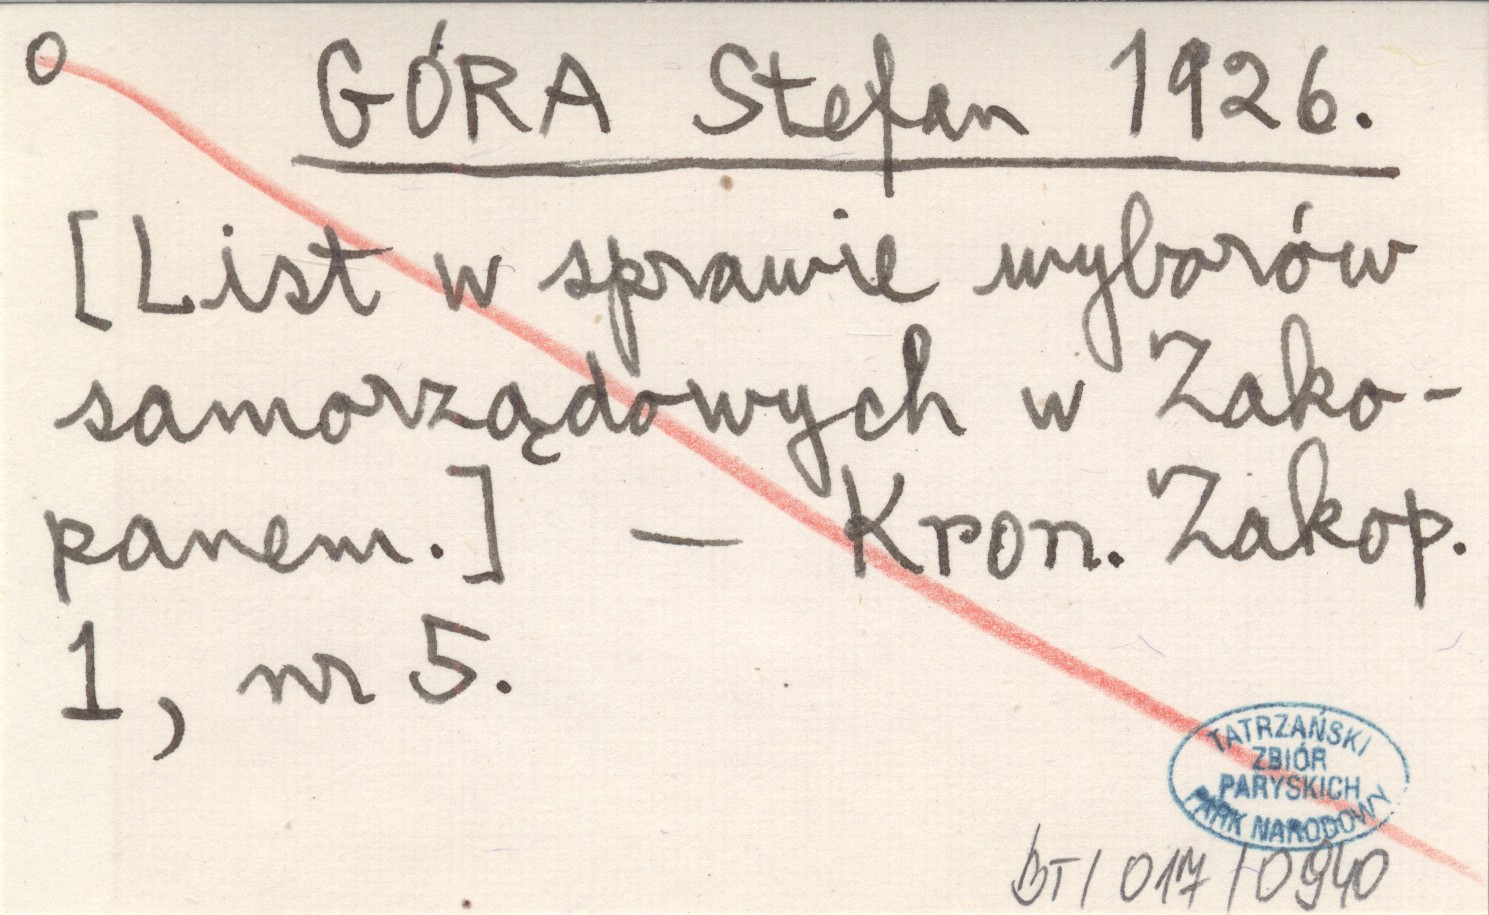 O GÓRA Stefan 1926.
[List w sprawie wyborów
samorządowych w Zako-
panem.] — Kron. Zakop.
1, nr 5.
TATRZAŃSKI
ZBIÓR
PARYSKICH
PARK NARODOWY
BT/017/0940